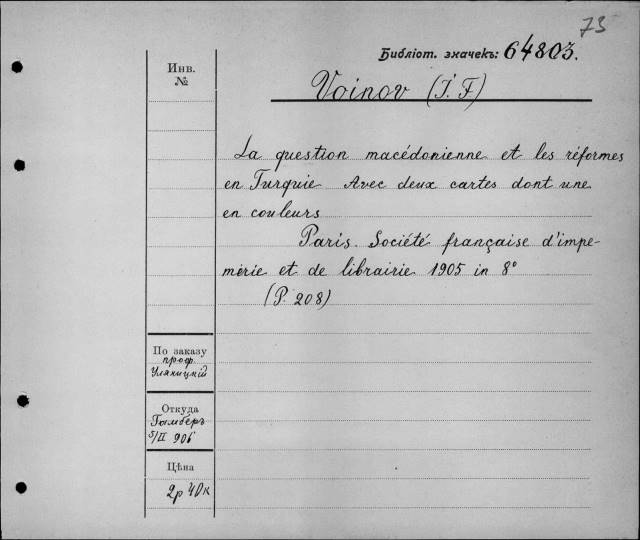 73
Библіот. значекъ: 64803.
Инв.
№
Voinov (I. F)
La question macédonienne et les réformes
en Turquie Avec deux cartes dont une
en couleurs
Paris. Société française d'impe-
mérie et de librairie 1905 in 8°
(P. 208)
По заказу
проф.
Уляницкій
Откуда
Гамберъ
5/II 906
Цѣна
2р 40к